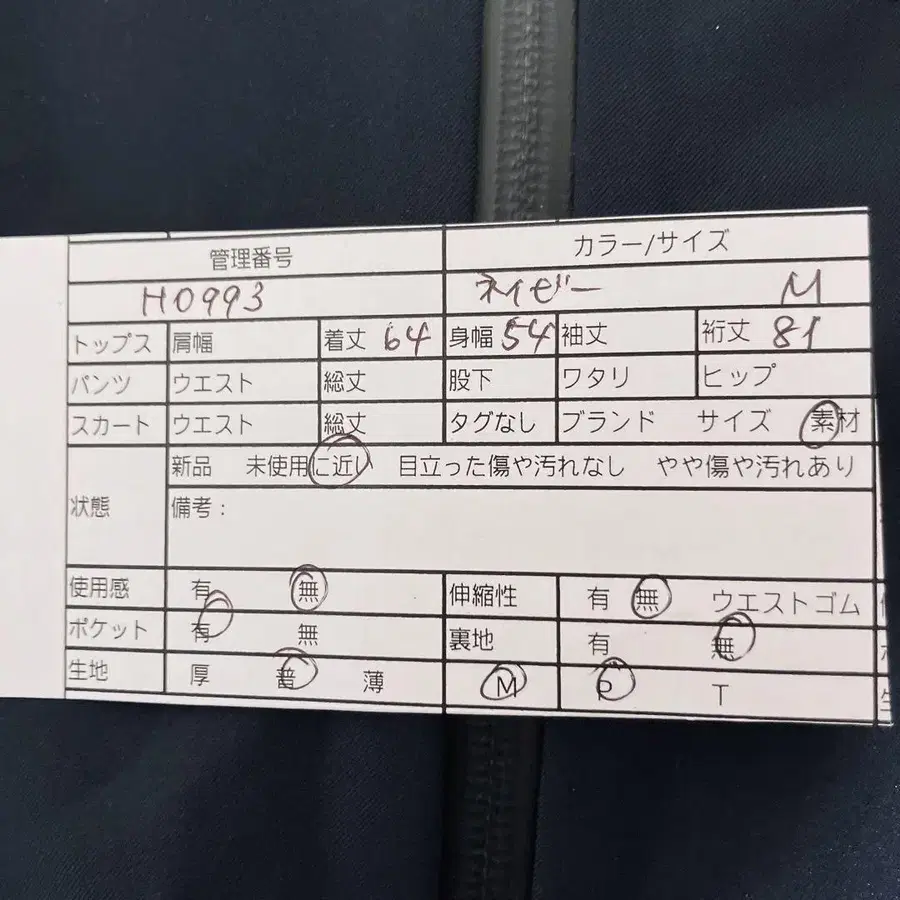 管理番号 カラー/サイズ
H0993 ネイビー M
トップス 肩幅 着丈 64 身幅 54 袖丈 裄丈 81
パンツ ウエスト 総丈 股下 ワタリ ヒップ
スカート ウエスト 総丈 タグなし ブランド サイズ 素材
新品 未使用に近い 目立った傷や汚れなし やや傷や汚れあり
状態 備考:
使用感 有 無 伸縮性 有 無 ウエストゴム
ポケット 有 無 裏地 有 無
生地 厚 普 薄 M P T